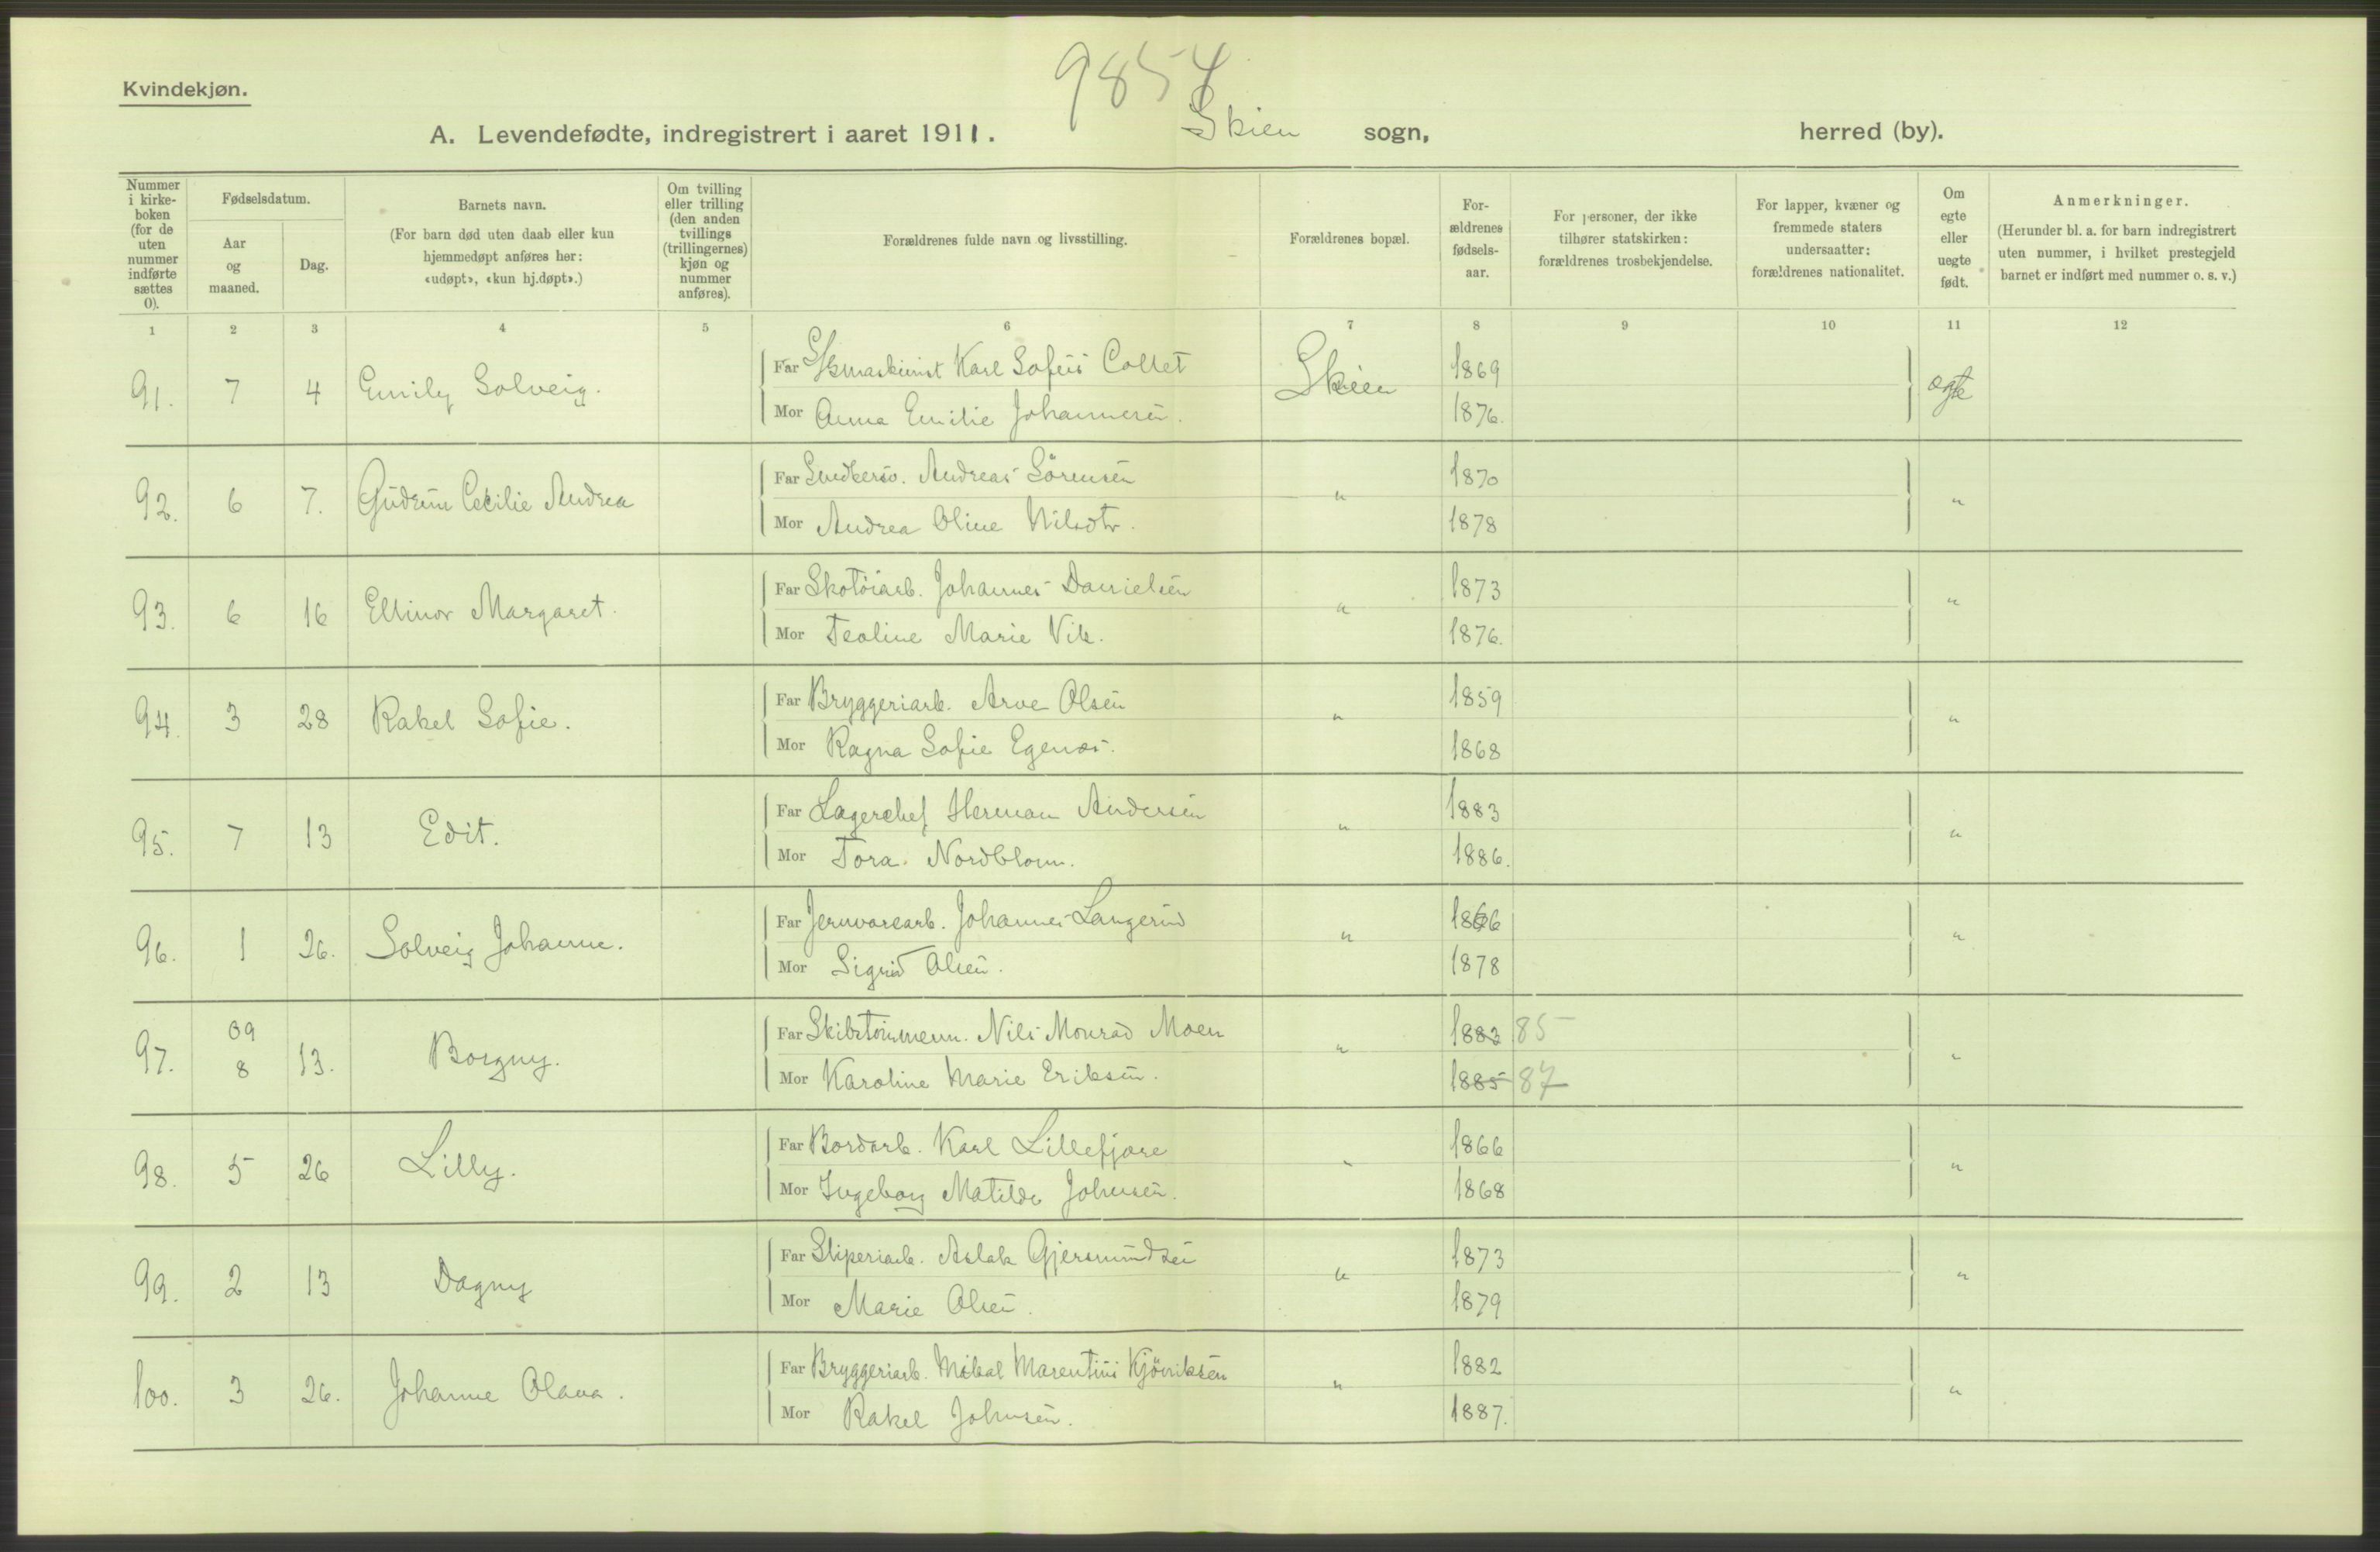 9854
Kvindekjøn.
A. Levendefødte, indregistrert i aaret 1911. Skien sogn, herred (by).
Nummer i kirke-boken (for de uten nummer indførte sættes 0).
Fødselsdatum.
Aar og maaned.
Dag.
Barnets navn.
(For barn død uten daab eller kun hjemmedøpt anføres her: «udøpt», «kun hj.døpt».)
Om tvilling eller trilling (den anden tvillings (trillingernes) kjøn og nummer anføres).
Forældrenes fulde navn og livsstilling.
Forældrenes bopæl.
For-ældrenes fødsels-aar.
For personer, der ikke tilhører statskirken: forældrenes trosbekjendelse.
For lapper, kvæner og fremmede staters undersaatter: forældrenes nationalitet.
Om egte eller uegte født.
Anmerkninger.
(Herunder bl. a. for barn indregistrert uten nummer, i hvilket prestegjeld barnet er indført med nummer o. s. v.)
1 2 3 4 5 6 7 8 9 10 11 12
91. 7 4 Emily Solveig. Far Karl Sofus Collet Skien 1869 egte
Mor Anna Emilie Johannesen. 1876.
92. 6 7. Gudrun Cecilie Andrea Far Andreas Sörensen " 1870 "
Mor Andrea Oline Nilsdtr. 1878
93. 6 16 Ellinor Margaret. Far Skotöiarb. Johannes Danielsen " 1873 "
Mor Teoline Marie Vik. 1876.
94. 3 28 Rakel Sofie. Far Bryggeriarb. Arve Olsen " 1859 "
Mor Ragna Sofie Egenæs. 1868
95. 7 13 Edit. Far Lagerchef Herman Andersen " 1883 "
Mor Tora Nordblom. 1886.
96. 1 26. Solveig Johanne. Far Jernvarearb. Johannes Langerud " 1866 "
Mor Sigrid Olsen. 1878
97. 09 8 13. Borgny. Far Skibstömmerm. Nils Monrad Moen " 1883 85 "
Mor Karoline Marie Eriksen. 1885 87
98. 5 26 Lilly. Far Bordarb. Karl Lillefjære " 1866 "
Mor Ingeborg Matilde Johnsen. 1868
99. 2 13 Dagny Far Sliperiarb. Aslak Gjermundsen " 1873 "
Mor Marie Olsen. 1879
100. 3 26. Johanne Olava. Far Bryggeriarb. Mikal Marentius Kjöniksen " 1882 "
Mor Rakel Johnsen. 1887.